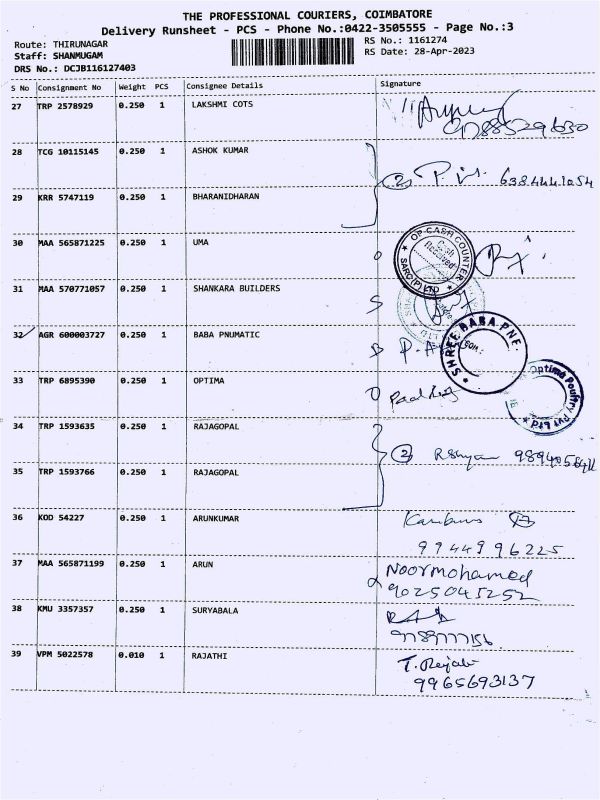 THE PROFESSIONAL COURIERS, COIMBATORE
Delivery Runsheet - PCS - Phone No.:0422-3505555 - Page No.:3
Route: THIRUNAGAR RS No.: 1161274
Staff: SHANMUGAM RS Date: 28-Apr-2023
DRS No.: DCJB116127403
S No Consignment No Weight PCS Consignee Details Signature
27 TRP 2578929 0.250 1 LAKSHMI COTS
9788529630
28 TCG 10115145 0.250 1 ASHOK KUMAR
2 6384441054
29 KRR 5747119 0.250 1 BHARANIDHARAN
30 MAA 565871225 0.250 1 UMA
OP-CASH COUNTER
Cash Received
SARC(P) LTD
31 MAA 570771057 0.250 1 SHANKARA BUILDERS
S
32 AGR 600003727 0.250 1 BABA PNUMATIC
B
SHREE BABA PNE.
33 TRP 6895390 0.250 1 OPTIMA
O
Optima Poultry Pvt Ltd
34 TRP 1593635 0.250 1 RAJAGOPAL
2
35 TRP 1593766 0.250 1 RAJAGOPAL
36 KOD 54227 0.250 1 ARUNKUMAR
9944996225
37 MAA 565871199 0.250 1 ARUN
Noormohamed
9025045252
38 KMU 3357357 0.250 1 SURYABALA
9789777156
39 VPM 5022578 0.010 1 RAJATHI
T. Rejabi
9965693137